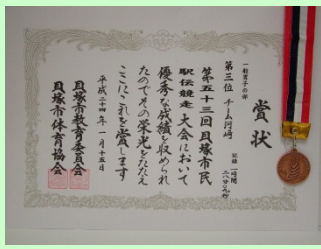 賞状
一般男子の部
第三位 チーム河崎
記録 一時間
二八分〇九秒
第五十三回貝塚市民
駅伝競走大会において
優秀な成績を収められ
たのでその栄光をたたえ
ここにこれを賞します
平成二十四年一月十五日
貝塚市教育委員会
貝塚市体育協会